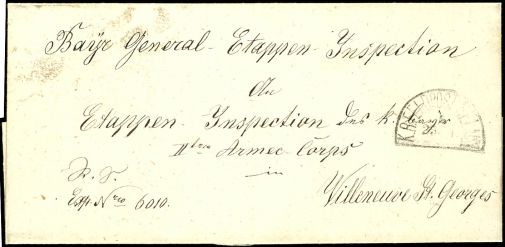 Bayr General-Etappen-Inspection
An
Etappen-Inspection des k. bayr
IIten Armee-Corps
in
Villeneuve St. Georges
Exp. Nro 6010.